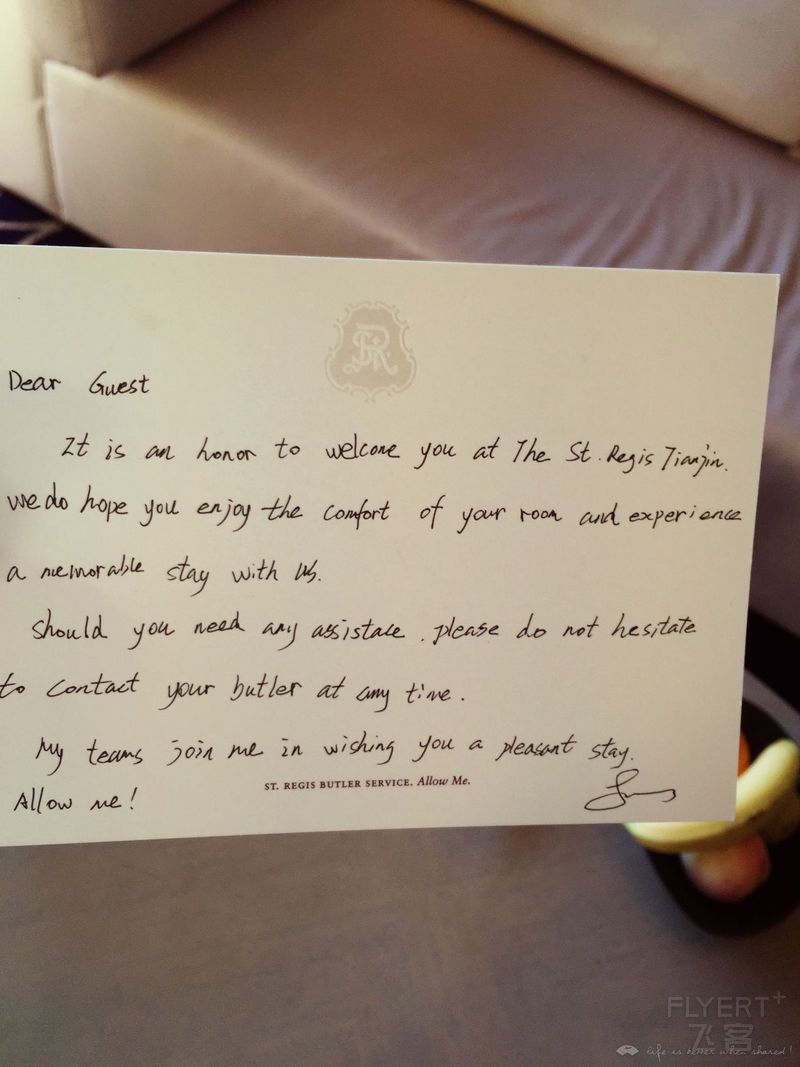 Dear Guest
It is an honor to welcome you at The St. Regis Tianjin.
we do hope you enjoy the comfort of your room and experience
a memorable stay with us.
Should you need any assistace. please do not hesitate
to contact your butler at any time.
My teams join me in wishing you a pleasant stay.
ST. REGIS BUTLER SERVICE. Allow Me.
Allow me!
FLYERT+
飞客
life is better when shared!